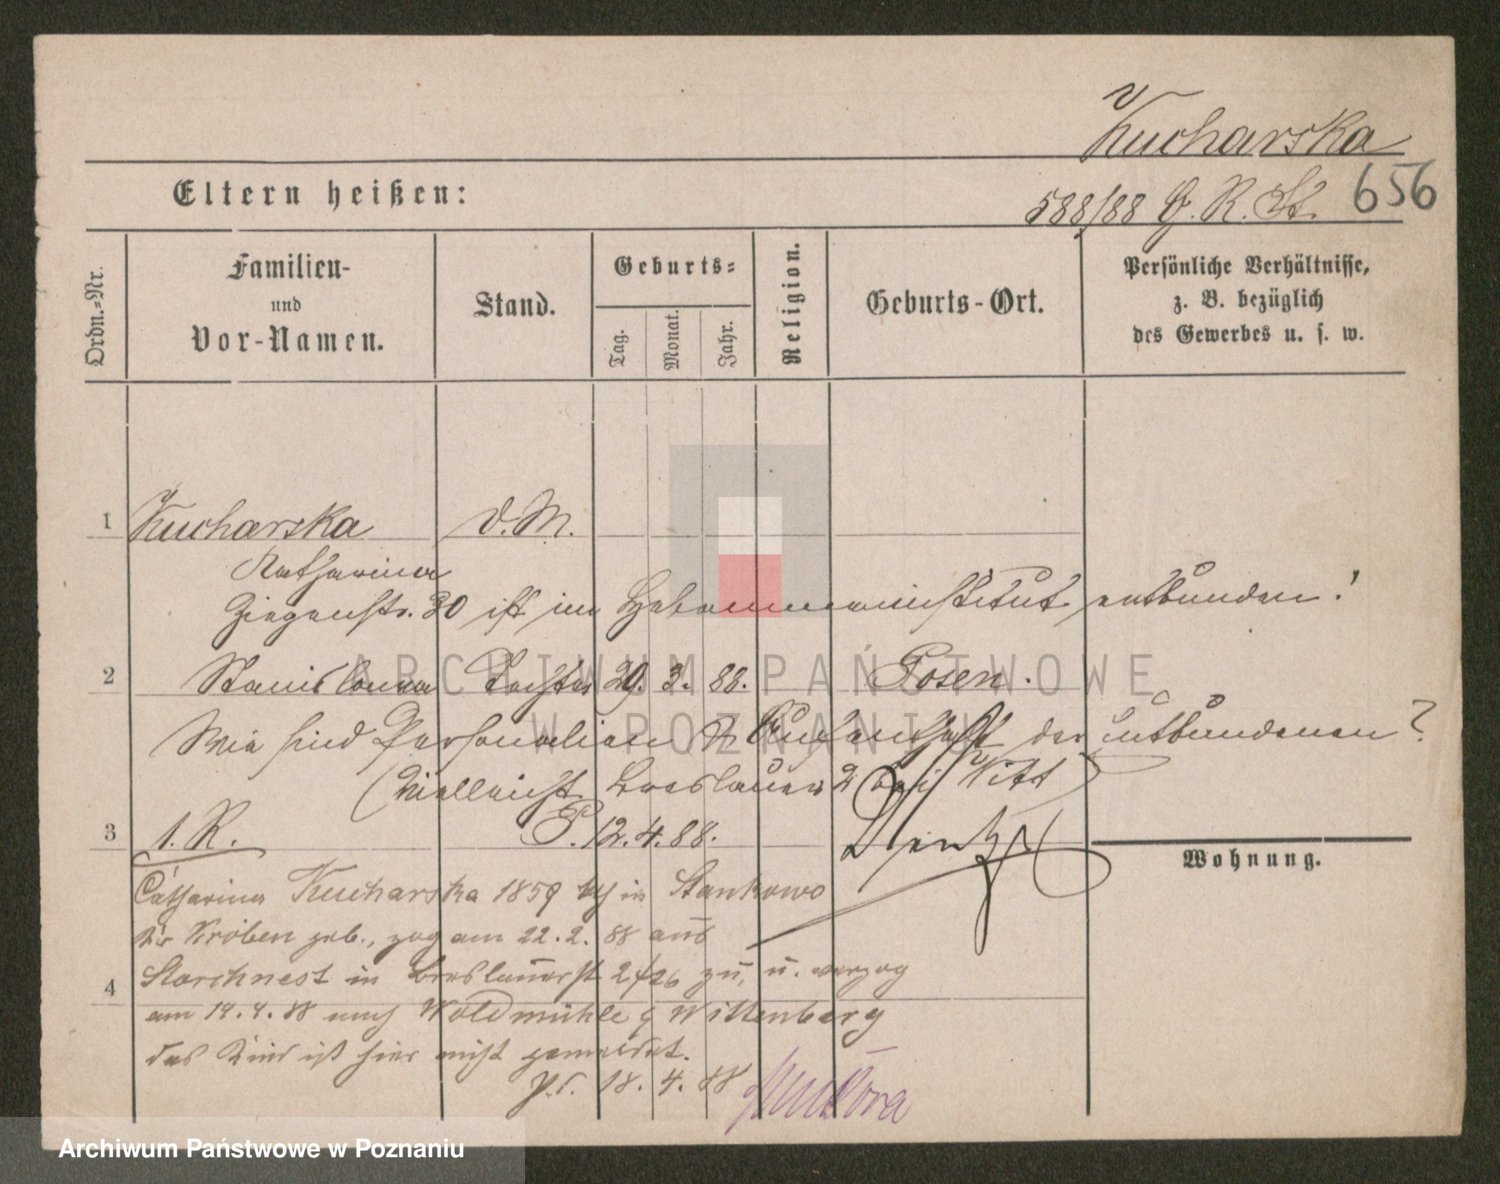 Kucharska
Eltern heißen:
588/88 G. R. St. 656
Ordn.-Nr.
Familien-
und
Vor-Namen.
Stand.
Geburts-
Tag.
Monat.
Jahr.
Religion.
Geburts-Ort.
Persönliche Verhältnisse,
z. B. bezüglich
des Gewerbes u. s. w.
1 Kucharska d. M.
Katharina
Ziegenstr. 30 ist im Hebammeninstitut entbunden!
2 Stanislawa Tochter 29. 3. 88. Posen.
Wie sind Personalien u. Aufenthalt der Entbundenen?
(Vielleicht Breslauer 2 bei Witt)
3 1. R. P. 12. 4. 88.
Wohnung.
Catharina Kucharska 1859 in Stankowo
Krs Kröben geb., zog am 22. 2. 88 aus
Storchnest in Breslauerst 2/ zu, u. verzog
4
am 14. 4. 88 nach Woldmühle Wittenberg
das Kind ist hier nicht gemeldet.
18. 4. 88
ARCHIWUM PAŃSTWOWE
W POZNANIU
Archiwum Państwowe w Poznaniu